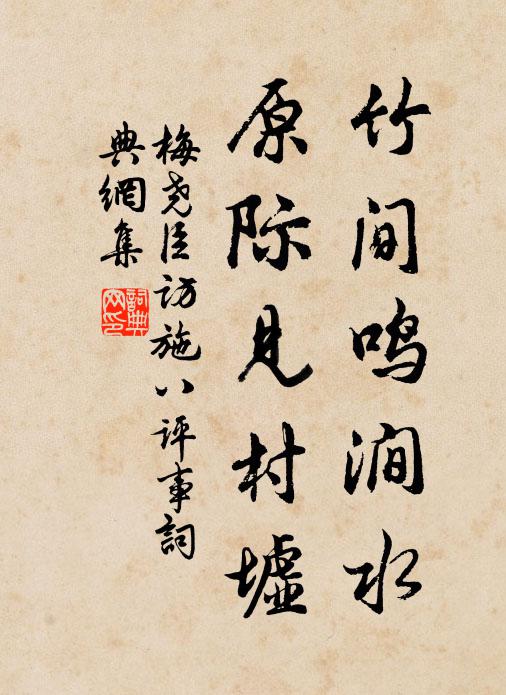 竹间鸣涧水
原际见村墟
梅尧臣访施八评事词
典網集
詞典
网印